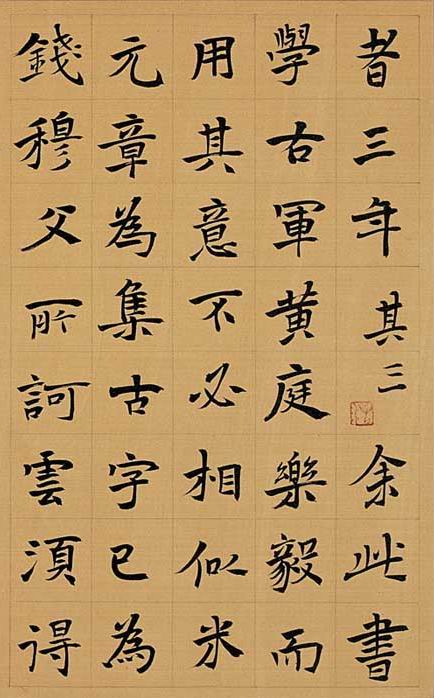 者三年其三余此書
學古軍黄庭樂毅而
用其意不必相似米
元章為集古字已為
錢穆父所訶雲須得